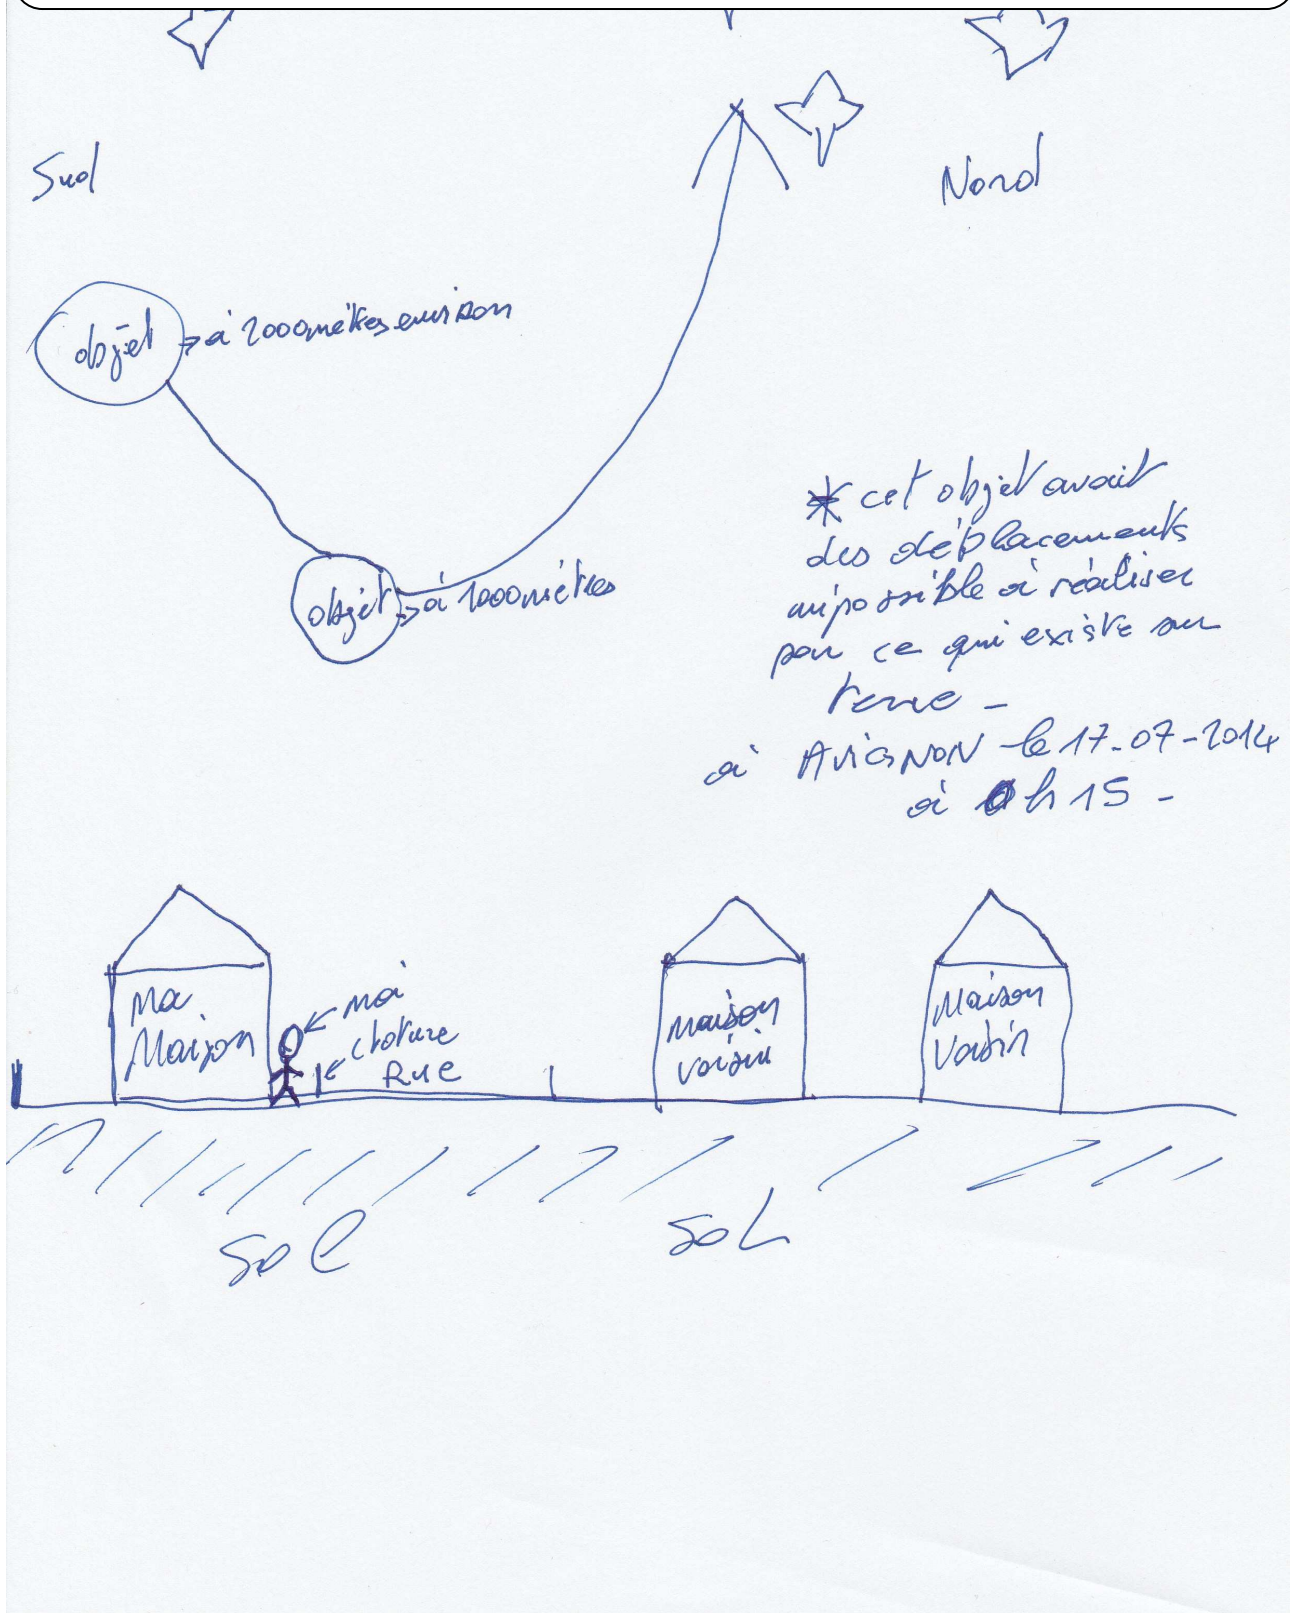 Sud
Nord
objet → à 2000 mètres environ
objet → à 1000 mètres
* cet objet avait
des déplacements
impossible à réaliser
par ce qui existe sur
terre -
à AVIGNON - le 17-07-2014
à 0h15 -
Ma
Maison
← moi
← cloture
RUE
maison
voisin
Maison
Voisin
Sol
SOL